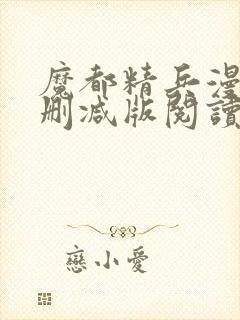 魔都精兵漫
删减版閱讀
戀小愛